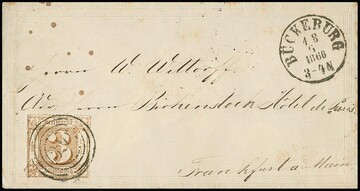 BÜCKEBURG
18
6
1866
3-4N
Herrn W. Wittdorff
Adr. von Birkenstock Hôtel de Paris
3
Frankfurt a. Main